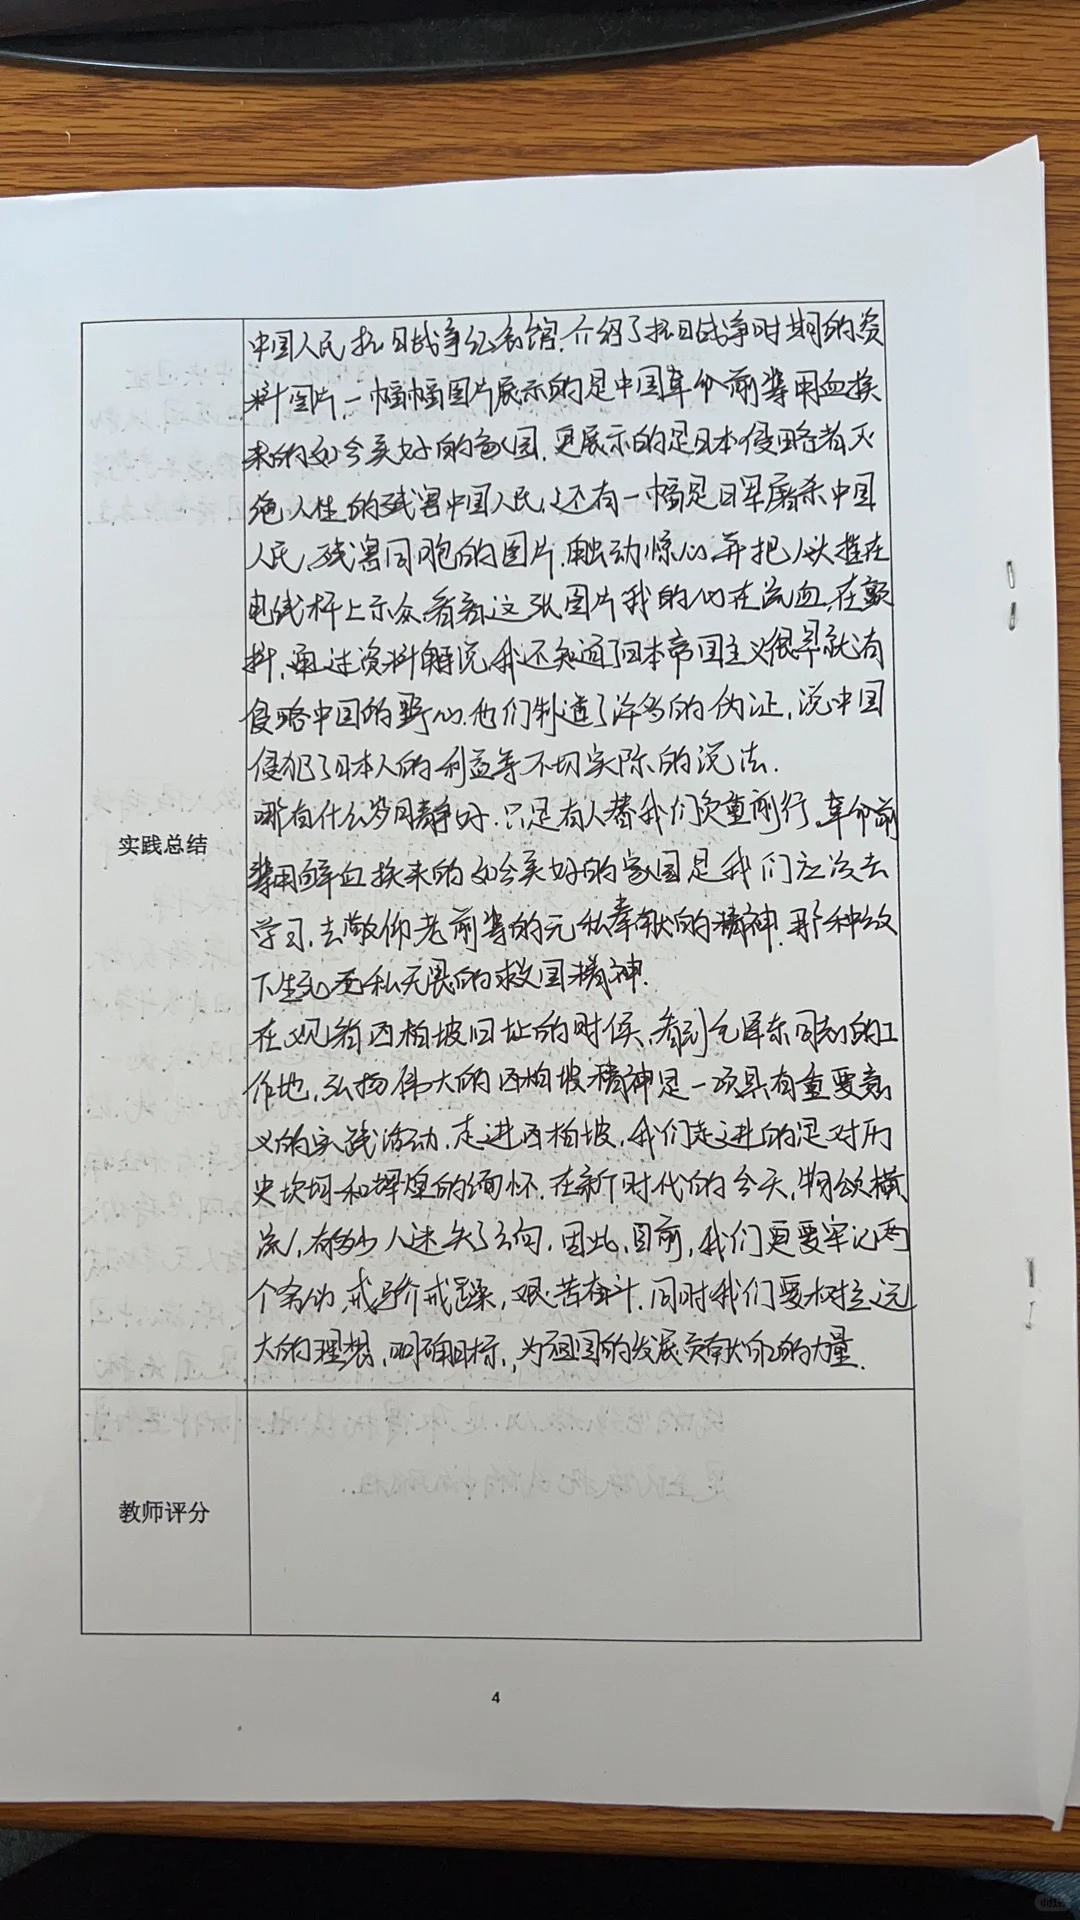 中国人民抗日战争纪念馆.介绍了抗日战争时期的资
料图片,一幅幅图片展示的是中国革命前辈用血换
来的如今美好的家国,更展示的是日本侵略者灭
绝人性的残害中国人民,还有一幅是日军屠杀中国
人民,残害同胞的图片,触动惊心,并把人头挂在
电线杆上示众,看着这张图片我的心在流血,在颤
抖,通过资料解说,我还知道了日本帝国主义很早就有
侵略中国的野心.他们制造了许多的伪证,说中国
侵犯了日本人的利益等不切实际的说法.
哪有什么岁月静好,只是有人替我们负重前行,革命前
辈用鲜血换来的如今美好的家国是我们应该去
学习,去敬仰老前辈的无私奉献的精神,那种放
下生死无私无畏的救国精神.
实践总结
在观看西柏坡旧址的时候,看到毛泽东同志的工
作地,弘扬伟大的西柏坡精神是一项具有重要意
义的实践活动.走进西柏坡,我们走进的是对历
史坎坷和辉煌的缅怀.在新时代的今天,物欲横
流,有多少人迷失了方向,因此,目前,我们更要牢记两
个务必,戒骄戒躁,艰苦奋斗.同时我们要树立远
大的理想,明确目标,为祖国的发展贡献自己的力量.
教师评分
4